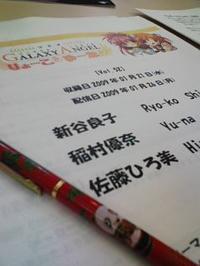 GALAXY ANGEL
[Vol.92]
収録日2009年01月21日(水)
配信日2009年01月26日(月)
新谷良子 Ryo-ko Shi
稲村優奈 Yu-na
佐藤ひろ美 Hi